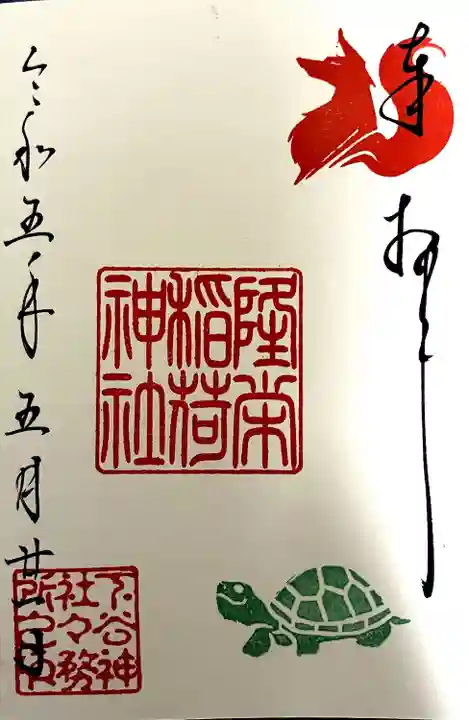 奉拝
隆栄
稲荷
神社
令和五年五月廿一日
下谷神
社々務
所之印